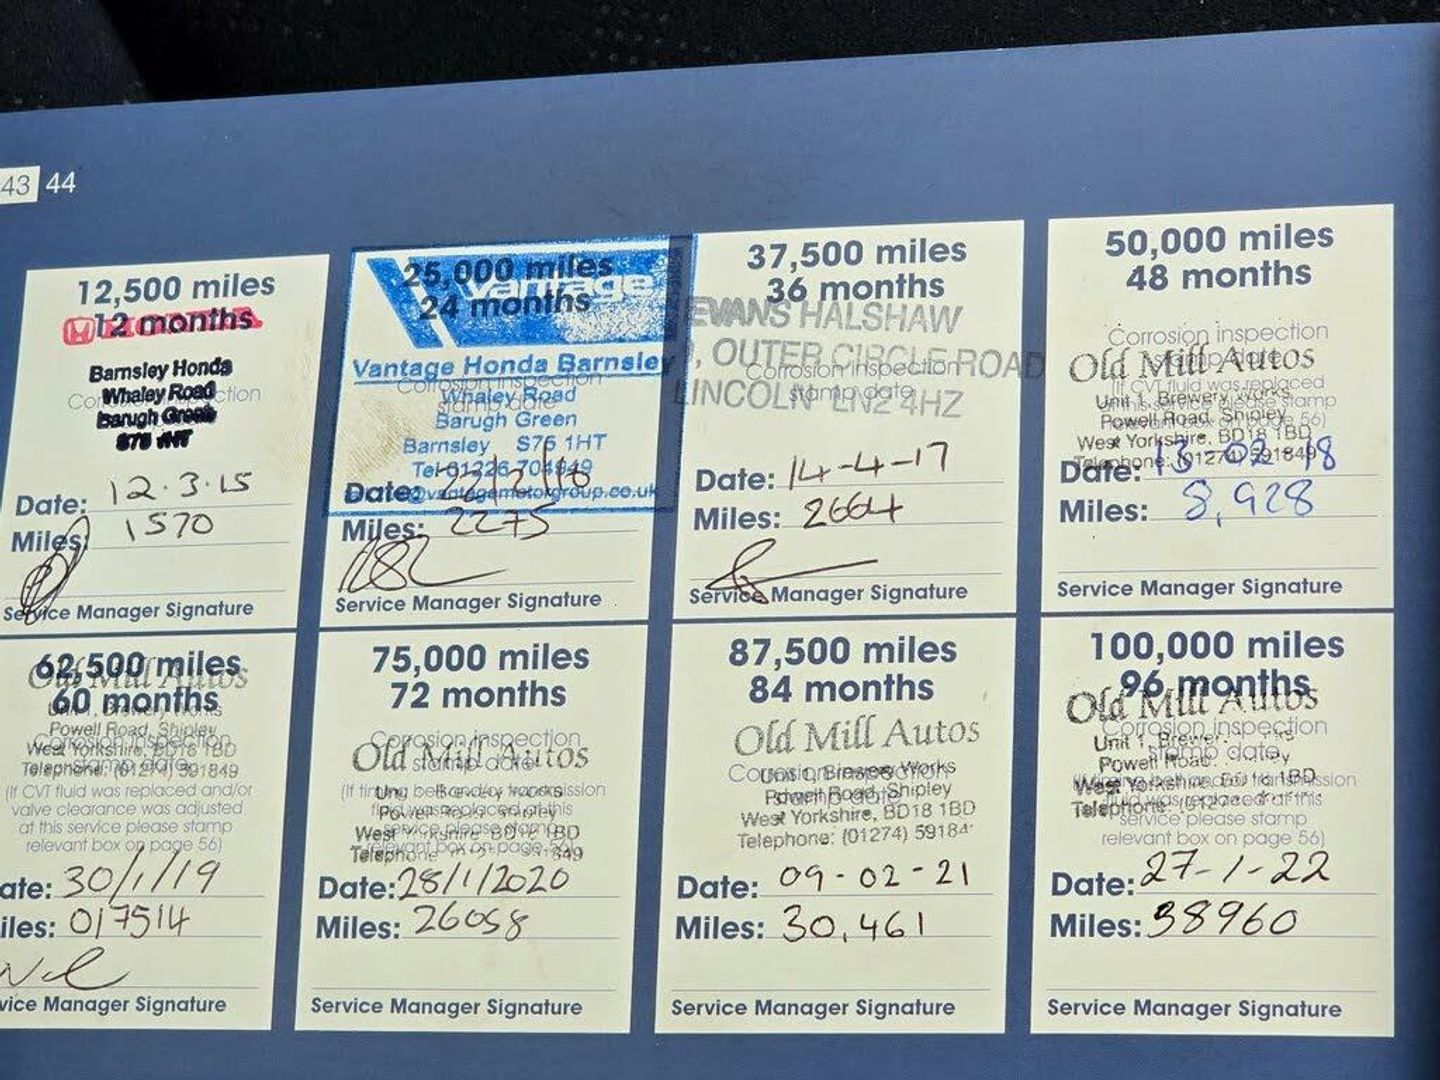 43 44
12,500 miles
12 months
HONDA
Barnsley Honda
Whaley Road
Barugh Green
S75 1HT
Date: 12.3.15
Miles: 1570
Service Manager Signature
25,000 miles
24 months
Vantage
Vantage Honda Barnsley
Corrosion inspection
stamp date
Whaley Road
Barugh Green
Barnsley S75 1HT
Tel 01226 704949
@vantagemotorgroup.co.uk
Date: 22/2/16
Miles: 2275
Service Manager Signature
37,500 miles
36 months
EVANS HALSHAW
OUTER CIRCLE ROAD
LINCOLN LN2 4HZ
Corrosion inspection
stamp date
Date: 14-4-17
Miles: 2664
Service Manager Signature
50,000 miles
48 months
Corrosion inspection
stamp date
Old Mill Autos
(If CVT fluid was replaced
at this service please stamp
relevant box on page 56)
Unit 1, Brewery Works
Powell Road, Shipley
West Yorkshire, BD18 1BD
Telephone: (01274) 591849
Date: -02-18
Miles: 8,928
Service Manager Signature
62,500 miles
60 months
Old Mill Autos
Powell Road, Shipley
West Yorkshire, BD18 1BD
Telephone: (01274) 591849
Corrosion inspection
stamp date
(If CVT fluid was replaced and/or
valve clearance was adjusted
at this service please stamp
relevant box on page 56)
ate: 30/1/19
iles: 017514
vice Manager Signature
75,000 miles
72 months
Corrosion inspection
stamp date
Old Mill Autos
West Yorkshire, BD18 1BD
Telephone
relevant box on page 56)
Date: 28/1/2020
Miles: 26058
Service Manager Signature
87,500 miles
84 months
Old Mill Autos
Corrosion inspection
stamp date
Unit 1, Brewery Works
Powell Road, Shipley
West Yorkshire, BD18 1BD
Telephone: (01274) 59184
Date: 09-02-21
Miles: 30,461
Service Manager Signature
100,000 miles
96 months
Old Mill Autos
Corrosion inspection
stamp date
Unit 1
Powell Road
West Yorkshire, BD18 1BD
Telephone:
transmission
fluid was replaced at this
service please stamp
relevant box on page 56)
Date: 27-1-22
Miles: 38960
Service Manager Signature